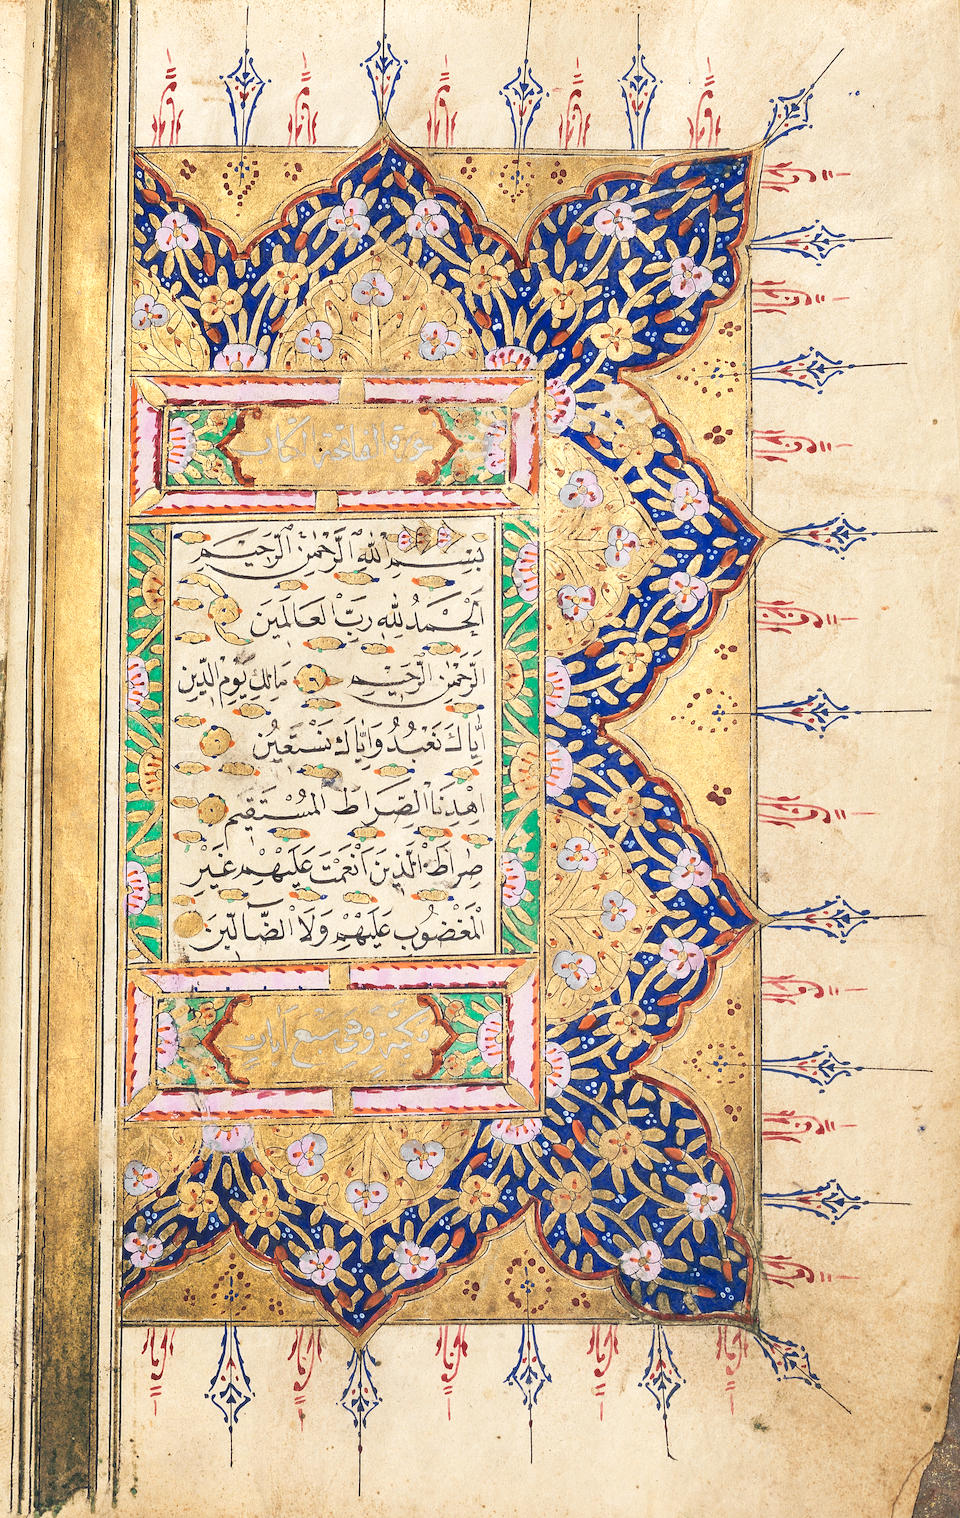 سورة الفاتحة الكتاب
بِسْمِ اللّٰهِ الرَّحْمٰنِ الرَّحِيمِ
اَلْحَمْدُ لِلّٰهِ رَبِّ الْعَالَمِينَ
اَلرَّحْمٰنِ الرَّحِيمِ مَالِكِ يَوْمِ الدِّينِ
اِيَّاكَ نَعْبُدُ وَاِيَّاكَ نَسْتَعِينُ
اِهْدِنَا الصِّرَاطَ الْمُسْتَقِيمَ
صِرَاطَ الَّذِينَ اَنْعَمْتَ عَلَيْهِمْ غَيْرِ
الْمَغْضُوبِ عَلَيْهِمْ وَلَا الضَّالِّينَ
مكية وهي سبع آيات